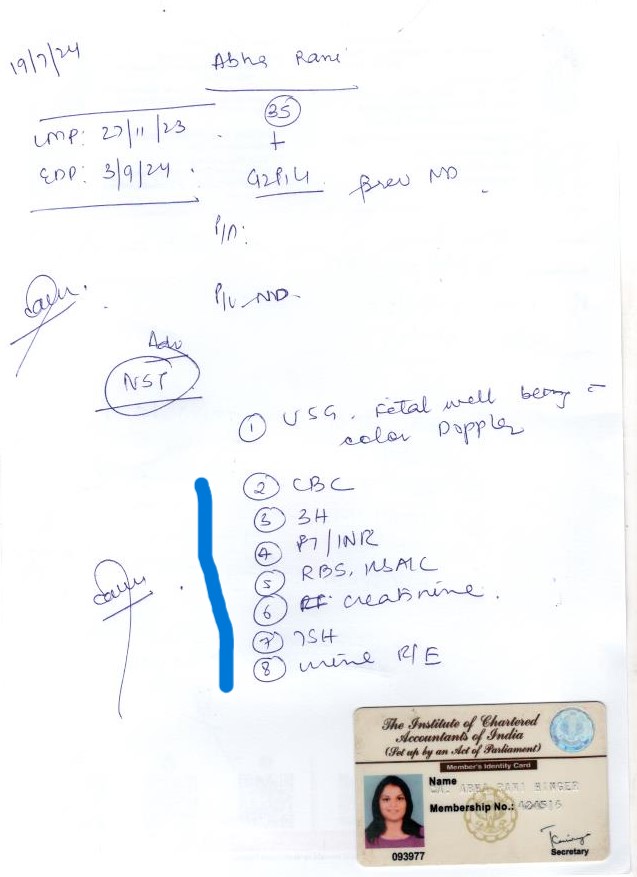 19/7/24
Abha Rani
35
+
LMP: 27/11/23
EDD: 3/9/24
G2P1L1 prev ND
P/A:
P/V ND.
Adv
NST
1 USG. Fetal well being c
color Doppler
2 CBC
3 3H
4 PT/INR
5 RBS, HbA1C
6 creatinine.
7 TSH
8 urine R/E
The Institute of Chartered
Accountants of India
(Set up by an Act of Parliament)
Member's Identity Card
Name
ABHA RANI
Membership No.:
Secretary
093977